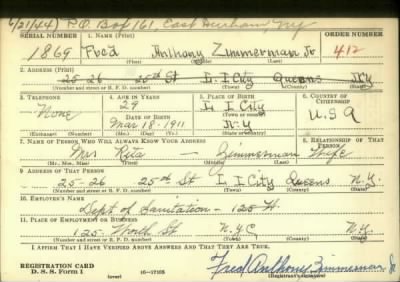 6/21/44) P.O. Box 161, East Durham, NY
SERIAL NUMBER 1. NAME (Print) ORDER NUMBER
1869 Fred Anthony Zimmerman Jr 412
(First) (Middle) (Last)
2. ADDRESS (Print)
25-26 25th St L. I City Queens N.Y
(Number and street or R. F. D. number) (Town) (County) (State)
3. TELEPHONE 4. AGE IN YEARS 5. PLACE OF BIRTH 6. COUNTRY OF CITIZENSHIP
None 29 L I City U.S A
DATE OF BIRTH (Town or county)
Mar 18 1911 N.Y
(Exchange) (Number) (Mo.) (Day) (Yr.) (State or country)
7. NAME OF PERSON WHO WILL ALWAYS KNOW YOUR ADDRESS 8. RELATIONSHIP OF THAT PERSON
Mrs Rita — Zimmerman Wife
(Mr., Mrs., Miss) (First) (Middle) (Last)
9. ADDRESS OF THAT PERSON
25-26 25th St L I City Queens N.Y.
(Number and street or R. F. D. number) (Town) (County) (State)
10. EMPLOYER'S NAME
Dept of Sanitation - 125 W
11. PLACE OF EMPLOYMENT OR BUSINESS
125 Worth St N.Y.C N.Y.
(Number and street or R. F. D. number) (Town) (County) (State)
I AFFIRM THAT I HAVE VERIFIED ABOVE ANSWERS AND THAT THEY ARE TRUE.
REGISTRATION CARD
D. S. S. Form 1 (over) 16—17105 Fred Anthony Zimmerman Jr
(Registrant's signature)